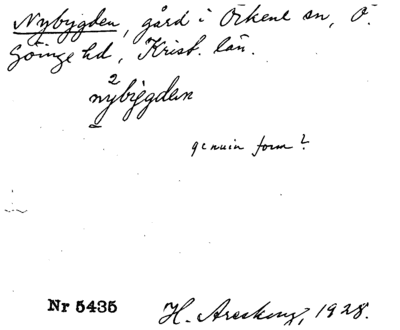 Nybygden, gård i Örkene sn, Ö.
Göinge hd, Krist. län.
2
nybygden
genuin form?
Nr 5435
H. Areskog, 1928.